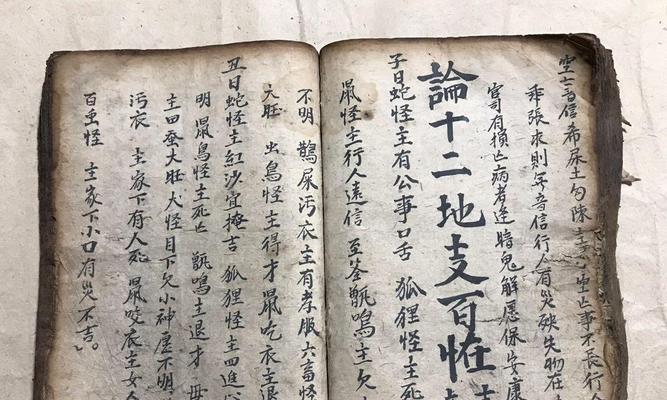 空亡音信希尿土勾陳主
乘張求則無音信行人有災殃失物在
官司有損亡病者逢暗鬼解愿保安康
論十二地支百怪
子日蛇怪主有公事口舌 狐狸怪主死
鼠怪主行人遠信 至釜甑鳴主欠
不明 鵲屎污衣主有孝服六畜怪
大旺 虫鳥怪主得才鼠吃衣主退
丑日蛇怪主紅沙覚掩吉狐狸怪主四進
明 鼠鳥怪主死亡 甑鳴主退才
主田蚕大旺犬怪目下欠小神愿不明
污衣 主家下有人死 鼠咬衣主女
百虫怪 主家下小口有災不吉。